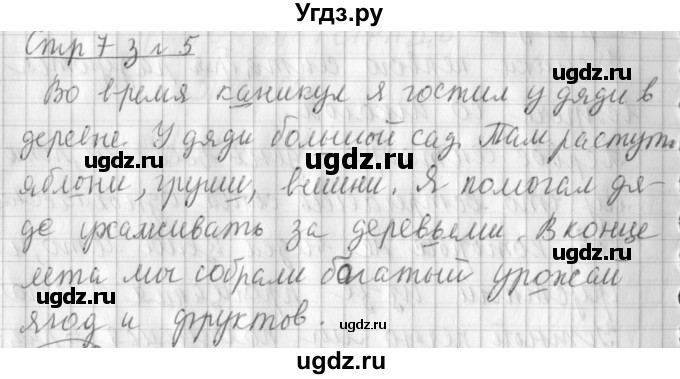 Угдз.ру
Стр 7 з г 5
ugdz.ru ugdz.ru
Во время каникул я гостил у дяди в
деревне. У дяди большой сад. Там растут
ugdz.ru ugdz.ru
яблони, груши, вишни. Я помогал дя-
де ухаживать за деревьями. В конце
ugdz.ru ugdz.ru
лета мы собрали богатый урожай
ягод и фруктов.
ugdz.ru
ugdz.ru